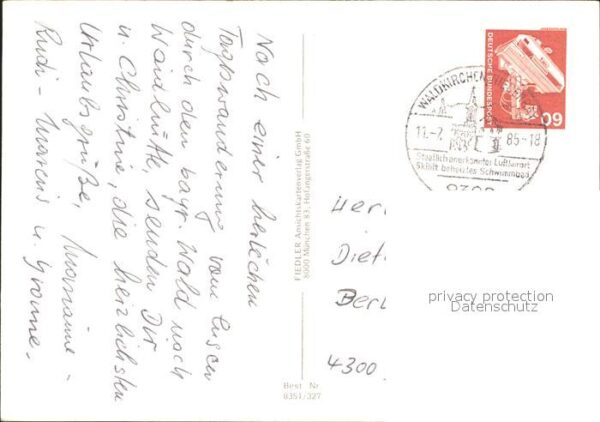 Nach einer herrlichen
Tageswanderung vom Lusen
durch den bayr. Wald nach
Waldhütte, senden Dir
u. Christine, die herzlichsten
Urlaubsgrüße, Marianne -
Rudi - Marcus u. Yvonne.
FIEDLER Ansichtskartenverlag GmbH
8000 München 83, Hofangerstraße 60
Best Nr.
8351/327
DEUTSCHE BUNDESPOST
60
WALDKIRCHEN
11.-7. 85-18
Staatlich anerkannter Luftkurort
Skilift beheiztes Schwimmbad
8392
Herr
Diet
Berl
4300
privacy protection
Datenschutz